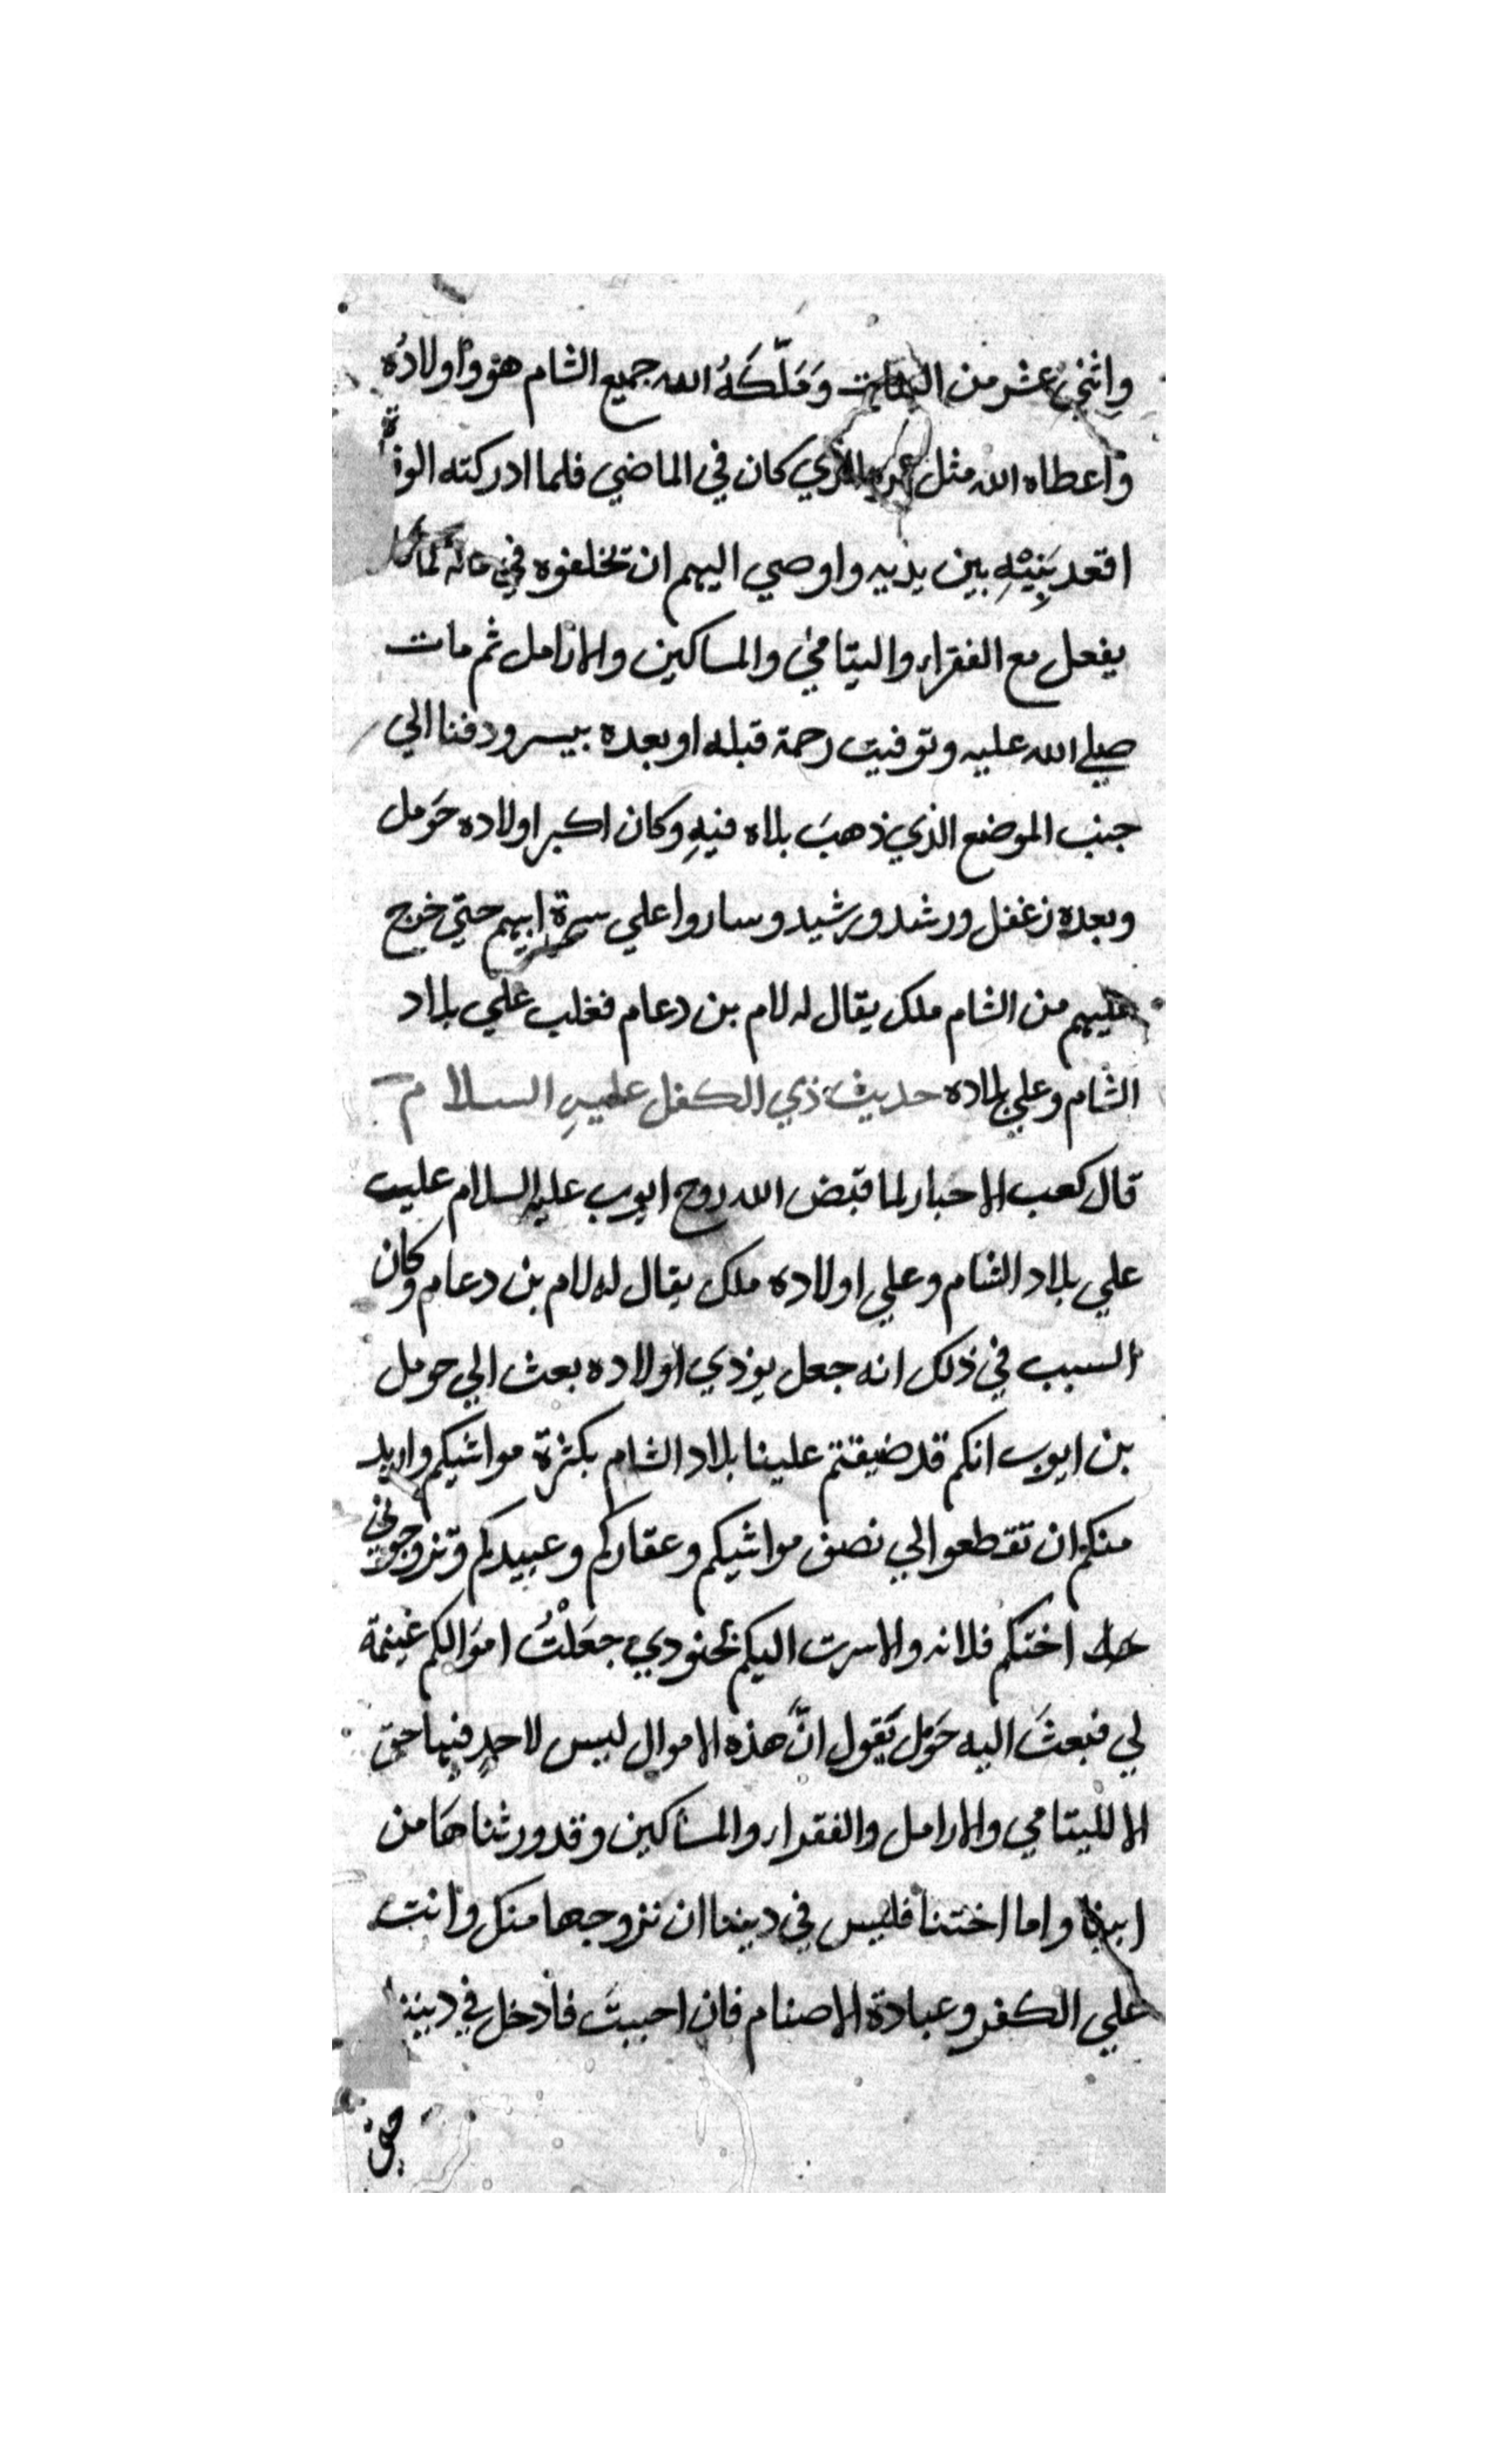 واثني عشر من البنات وَمَلَّكَهُ الله جميع الشام هو واولادُه
واعطاه الله مثل عمره الذي كان في الماضي فلما ادركته الوفاة
اقعد بَنِيْهِ بين يديه واوصي اليهم ان تخلفوه في ماله كما كان
يفعل مع الفقراء واليتامي والمساكين والارامل ثم مات
صلي الله عليه وتوفيت رحمة قبله او بعده بيسر ودفنا الي
جنب الموضع الذي ذهبَ بلاه فيهِ وكان اكبر اولاده حَومل
وبعده زغفل ورشد ورشيد وساروا علي سيرة ابيهم حتي خرج
عليهم من الشام ملك يقال له لام بن دعام فغلب علي بلاد
الشام وعلي بلاده حديث ذي الكفل عليهِ السلام
قال كعب الاحبار لما قبض الله روح ايوب عليه السلام عليت
علي بلاد الشام وعلي اولاده ملك يقال له لام بن دعام وكان
السبب في ذلك انه جعل يوذي اولاده بعث الي حومل
بن ايوب انكم قد ضيقتم علينا بلاد الشام بكثرة مواشيكم واريد
منكم ان تقطعوا الي نصف مواشيكم وعقاركم وعبيدكم وتزوجوني
اختكم فلانه والا سرت اليكم بجنودي جعَلْتُ اموَالكم غنيمة
لي فبعثَ اليه حَومل يَقول انَّ هذه الاموال ليس لاحدٍ فيها حق
الا لليتامي والارامل والفقراء والمساكين وقد ورثناهَا من
ابينا واما اختنا فليس في ديننا ان نزوجها منك وانت
علي الكفر وعبادة الاصنام فان احببتَ فادخل في ديننا
حتي